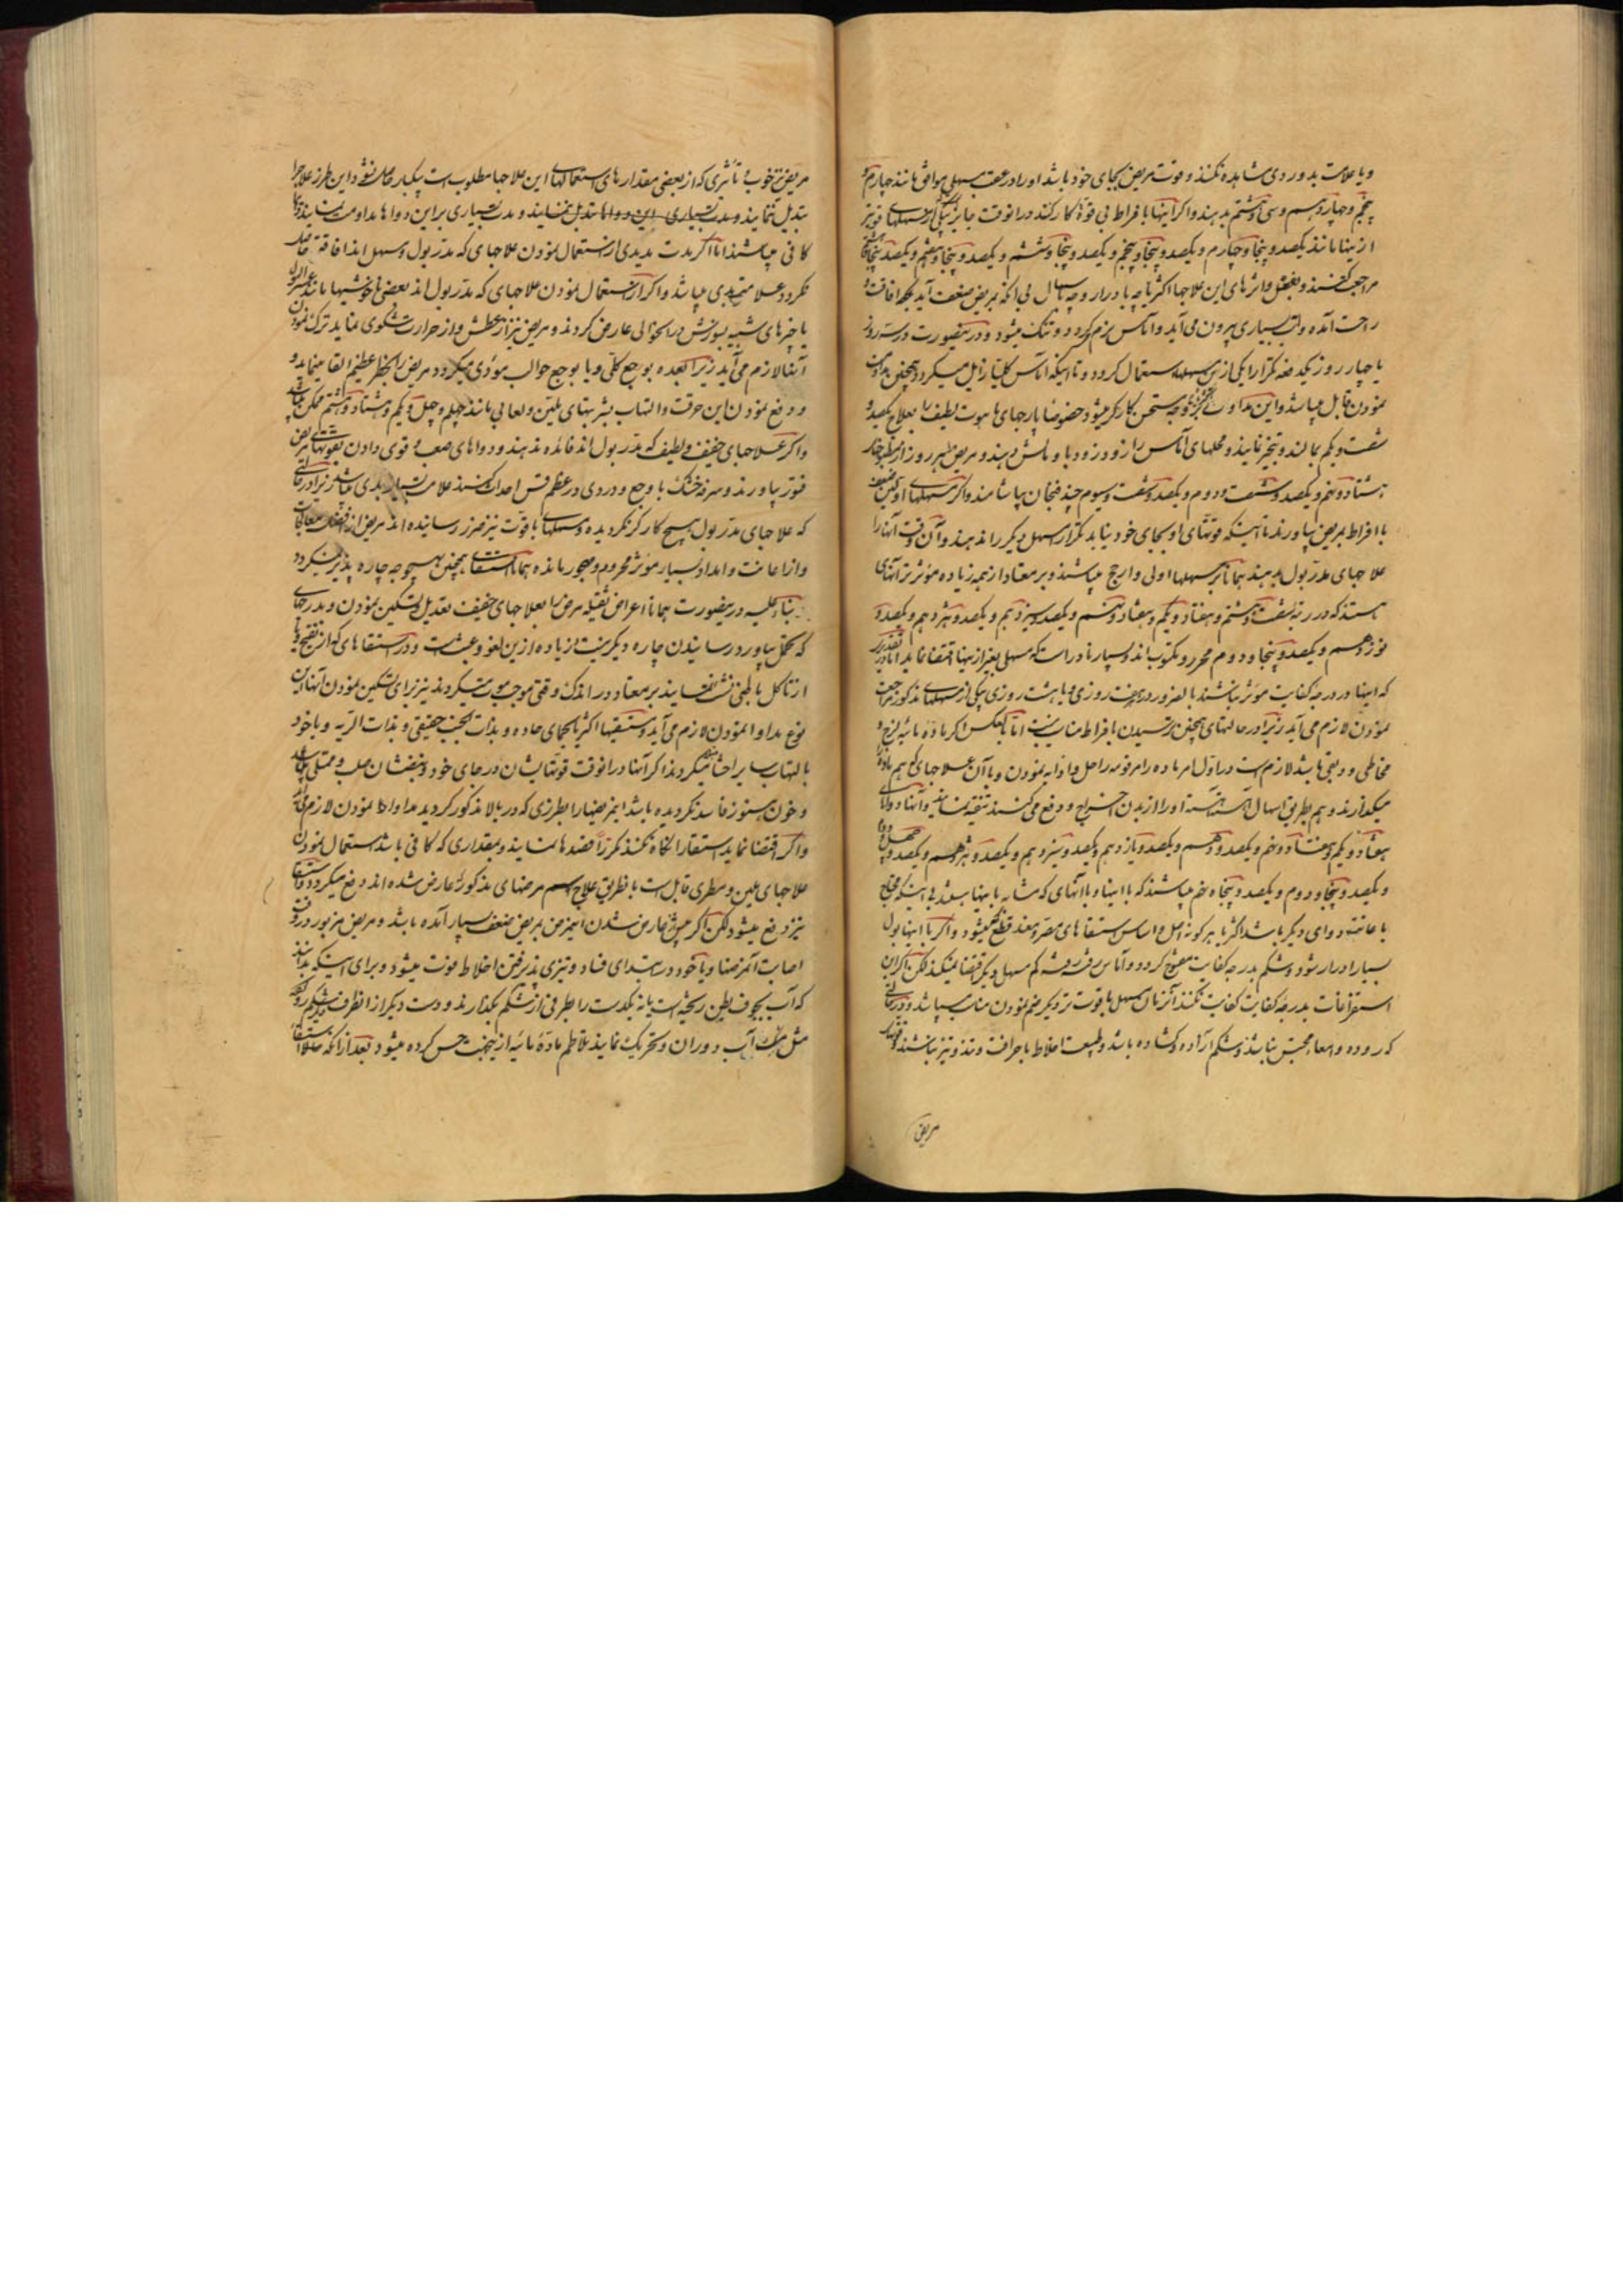 و یا علامت بد و ردی مشاهده نکنند و قوت مریض بجای خود باشد او را در عقب مسهلی موافق مانند چهارم و
پنجم و چهاردهم و سی و هشتم بدهند و اگر اینها با افراط بی قوة کار کنند در آنوقت جایز بیکی از مسهلهای قویتر
از اینها مانند یکصد و پنجاه و چهارم و یکصد و پنجاه و پنجم و یکصد و پنجاه و ششم و یکصد و پنجاه و هفتم و یکصد و پنجاه
مراجعت کنند و بفعل و اثرهای این علاجها اکثر یا چه بادرار و چه باسهال بی آنکه بمریض ضعف آید بلکه افاقت و
راحت آمده و آب بسیاری بیرون می آید و آماس نرم گردد و تنک میشود و در ینصورت در سه روز
یا چهار روز یکدفعه تکرارا یکی ازین مسهلها استعمال کردد و تا اینکه آماس کلیّا زایل میگردد همچنین مداومت
نمودن قابل میباشد و این مداوا بوجه مستحسن کارگر میشود خصوصا پارچهای هوت لطیف را بعلاج یکصد و
شصت و یکم بمالند و تبخیر نمایند و محلهای آماس را زود زود با و مالش دهند و مریض هر روز از مطبوخها
هشتاد و نهم و یکصد و شصت و دوم و یکصد و شصت و سیوم چند فنجان بیاشامند و اگر مسهلهای اولین ضعف
با افراط بمریض بیاورند تا اینکه قوتهای او بجای خود نیاید تکرار مسهل دیگر را ندهند و آن وقت آنها را
علاجهای مدر بول بدهند همانا بر مسهلها اولی و ارجح میباشند و بر معتاد از همه زیاده مؤثرتر آنهای
هستند که در رتبه شصت و هشتم و هفتاد و یکم و هفتاد و نهم و یکصد و سیزدهم و یکصد و هژدهم و یکصد و
نوزدهم و یکصد و پنجاه و دوم محرر و مکتوب اند و بسیار نادر است که مسهلی بغیر از اینها اقتضا نماید
که اینها در درجه کفایت مؤثر نباشند بالضرور در هفت روزی و یا هشت روزی بیکی از مسهلهای مذکور مراجعت
نمودن لازم می آید زیرا در حالتهای همچنین ترسیدن با افراط مناسب نیست اما بعکس اگر مادّه مائیه لزج و
مخاطی و دبقی باشد لازم است در اول امر ماده را مرقومه را حل و اذابه نمودن و با آن علاجهای که هم ماده را
میگدازند و هم بطریق اسهال آهسته آهسته او را از بدن اخراج و دفع می کنند تنقیه نمایند و آنها دواهای
هفتاد و یکم و هفتاد و نهم و یکصد و دهم و یکصد و یازدهم و یکصد و سیزدهم و یکصد و هژدهم و یکصد و چهل و
و یکصد و پنجاه و دوم و یکصد و پنجاه و نهم میباشند که با اینها و با آنهای که مشابه با اینها باشند بی اینکه محتاج
باعانت دوای دیگر باشد اکثر یا بهر گونه اصل و اساس استسقاهای مضر و مفسد قطع میشود و اگر با اینها بول
بسیار ادرار شود و شکم بدرجه کفایت مفتوح کردد و آماس رفته رفته کم مسهل دیگر اقتضا نمیکند لکن اگر این
استفراغات بدرجه کفایت کفایت نکنند آنزمان مسهل با قوت تر دیگر ضم نمودن مناسب میباشد و در حالتی
که روده و امعا محتبس نباشند و شکم آزاده و گشاده باشد و طبیعت اخلاط با حرافت و تند و تیز نباشند
مریض
مریض نیز خوب و تأثیری که از بعضی مقدارهای استعمالهای این علاجها مطلوب است بیکبار حاصل نشود این طرز علاج را
تبدیل ننمایند و مدت بسیاری این دواها تبدیل ننمایند و مدت بسیاری بر این دواها مداومت نمایند تا
کافی میباشند اما اگر بمدت مدیدی از استعمال نمودن علاجهای که مدر بول و مسهل اند افاقه حاصل
نکردد علامت بدی میباشد و اگر از استعمال نمودن علاجهای که مدر بول اند بعضی ناخوشیها مانند عسر البول
یا چیزهای شبیه بسوزش در انحوالی عارض کردند و مریض نیز از عطش و از حرارت شکوی نماید ترک نمودن
آنها لازم می آید زیرا بعده بوجع کلی و یا بوجع حوالب مؤدی میگردد و مریض را بخطر عظیم القا مینماید و
و دفع نمودن این حرقت و التهاب بشربتهای ملین و لعابی مانند چهلم و چهل و یکم و هشتاد و هشتم ممکن میباشد
و اگر علاجهای خفیف و لطیف که مدر بول اند فائده ندهند و دواهای صعب و قوی دادن بقوتهای مریض
فتور بیاورند و سرفه خشک با وجع و دردی در عظم قس احداث کنند علامت بسیار بدی میباشد زیرا در حالتی
که علاجهای مدر بول هیچ کارگر نگردیده و مسهلهای باقوت نیز ضرر رسانیده اند مریض از
و از اعانت و امداد بسیار مؤثر محروم و مهجور مانده همانا استسقای همچنین بهیچوجه چاره پذیر نمیگردد
بناء علیه درینصورت همانا اعراض ثقیله مرض را بعلاجهای خفیف تعدیل و تسکین نمودن و بدرجهای
که تحمل بیاورد رسانیدن چاره دیگر نیست زیاده ازین لغو و عبث است و در استسقاهای که از نضج و یا
از تآکل باطنی نشئت نمایند بر معتاد در اندک وقتی موجب موت میگردند نیز برای تسکین نمودن آنها این
نوع مداوا نمودن لازم می آید و مستسقیها اکثر یا بحمای حاده و بذات الجنب حقیقی و بذات الریه و یا خود
بالتهاب سایر احشا میگردند اگر آنها در آنوقت قوتهایشان در جای خود و نبضشان صلب و ممتلی باشد
و خون هنوز فاسد نگردیده باشد این مرضها را بطرزی که در بالا مذکور گردید مداوا نمودن لازم می آید
و اگر اقتضا نماید استسقا را نگاه نکنند مکررا فصدها نمایند و بمقداری که کافی باشد استعمال نمودن
علاجهای ملین و مطری قابل است با طریق علاج مرضهای مذکوره عارض شده اند دفع میگردد و استسقا
نیز دفع میشود لکن اگر پیش از عارض شدن این مرض بمریض ضعف بسیار آمده باشد و مریض مزبور در وقت
اصابت آن مرضها و یا خود در ابتدای فساد و تیزی پذیرفتن اخلاط فوت میشود و برای اینکه بدانند
که آب بجوف بطن ریخته است یا نه یکدست را بطرفی از شکم بگذارند و دست دیگر از آنطرف شکم
مثل آب دوران و تحریک نمایند تلاطم مادّه مائیه ازینجهت حس کرده میشود بعد از آنکه